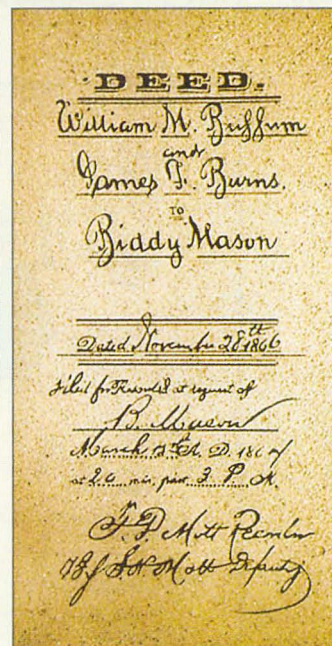 DEED.
William M. Buffum
and
James F. Burns.
TO
Biddy Mason
Dated November 28th 1866
Filed for Record at request of
B. Mason
March A. D. 186
at 20 min. past 3 P. M.
Mott Recorder
Mott Deputy